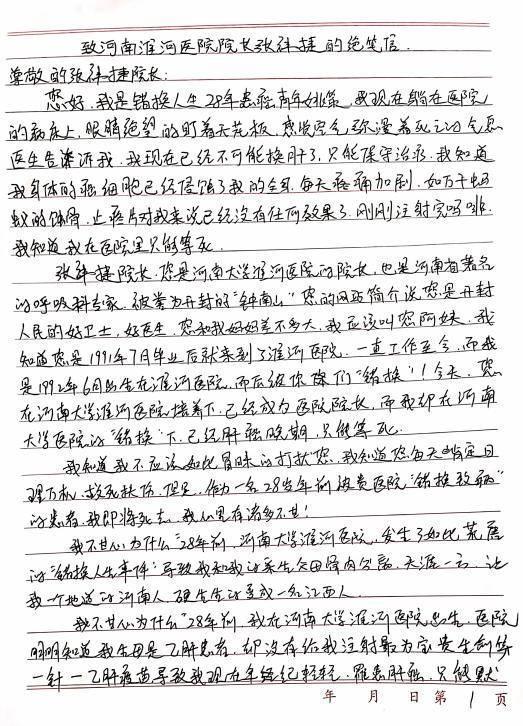 致河南淮河医院院长张祎捷的绝笔信.
尊敬的张祎捷院长:
您好.我是错换人生28年患癌青年姚策,我现在躺在医院
的病床上,眼睛绝望的盯着天花板,感觉空气弥漫着死亡的气息
医生告诉我.我现在已经不可能换肝了,只能保守治疗.我知道
我身体的癌细胞已经侵蚀了我的全身.每天疼痛加剧.如万千蚂
蚁的蚀骨.止疼片对我来说已经没有任何效果了.刚刚注射完吗啡.
我知道我在医院里只能等死.
张祎捷院长.您是河南大学淮河医院的院长,也是河南省著名
的呼吸科专家.被誉为开封的"钟南山"您的网站简介说您是开封
人民的好卫士,好医生.您和我妈妈差不多大,我应该叫您阿姨.我
知道您是1991年7月毕业后就来到了淮河医院.一直工作至今.而我
是1992年6月出生在淮河医院.而后被你院们"错换"!今天,您
在河南大学淮河医院接着下.已经成为医院院长,而我却在河南
大学医院的"错换"下.已经肝癌晚期,只能等死.
我知道我不应该如此冒昧的打扰您.我知道您每天肯定日
理万机.救死扶伤,但是,作为一名28岁年前被贵医院"错换致癌"
的患者.我即将死去.我心里有诸多不甘!
我不甘心,为什么"28年前.河南大学淮河医院,发生了如此荒唐
的"错换人生事件"导致我和我的亲生父母骨肉分离.天涯一方.让
我一个地道的河南人.硬生生的变成一名江西人.
我不甘心,为什么"28年前,我在河南大学淮河医院出生.医院
明明知道我生母是乙肝患者.却没有给我注射最为宝贵生命第
一针一乙肝疫苗导致我现在年纪轻轻.罹患肝癌.只能默
年 月 日 第 1 页